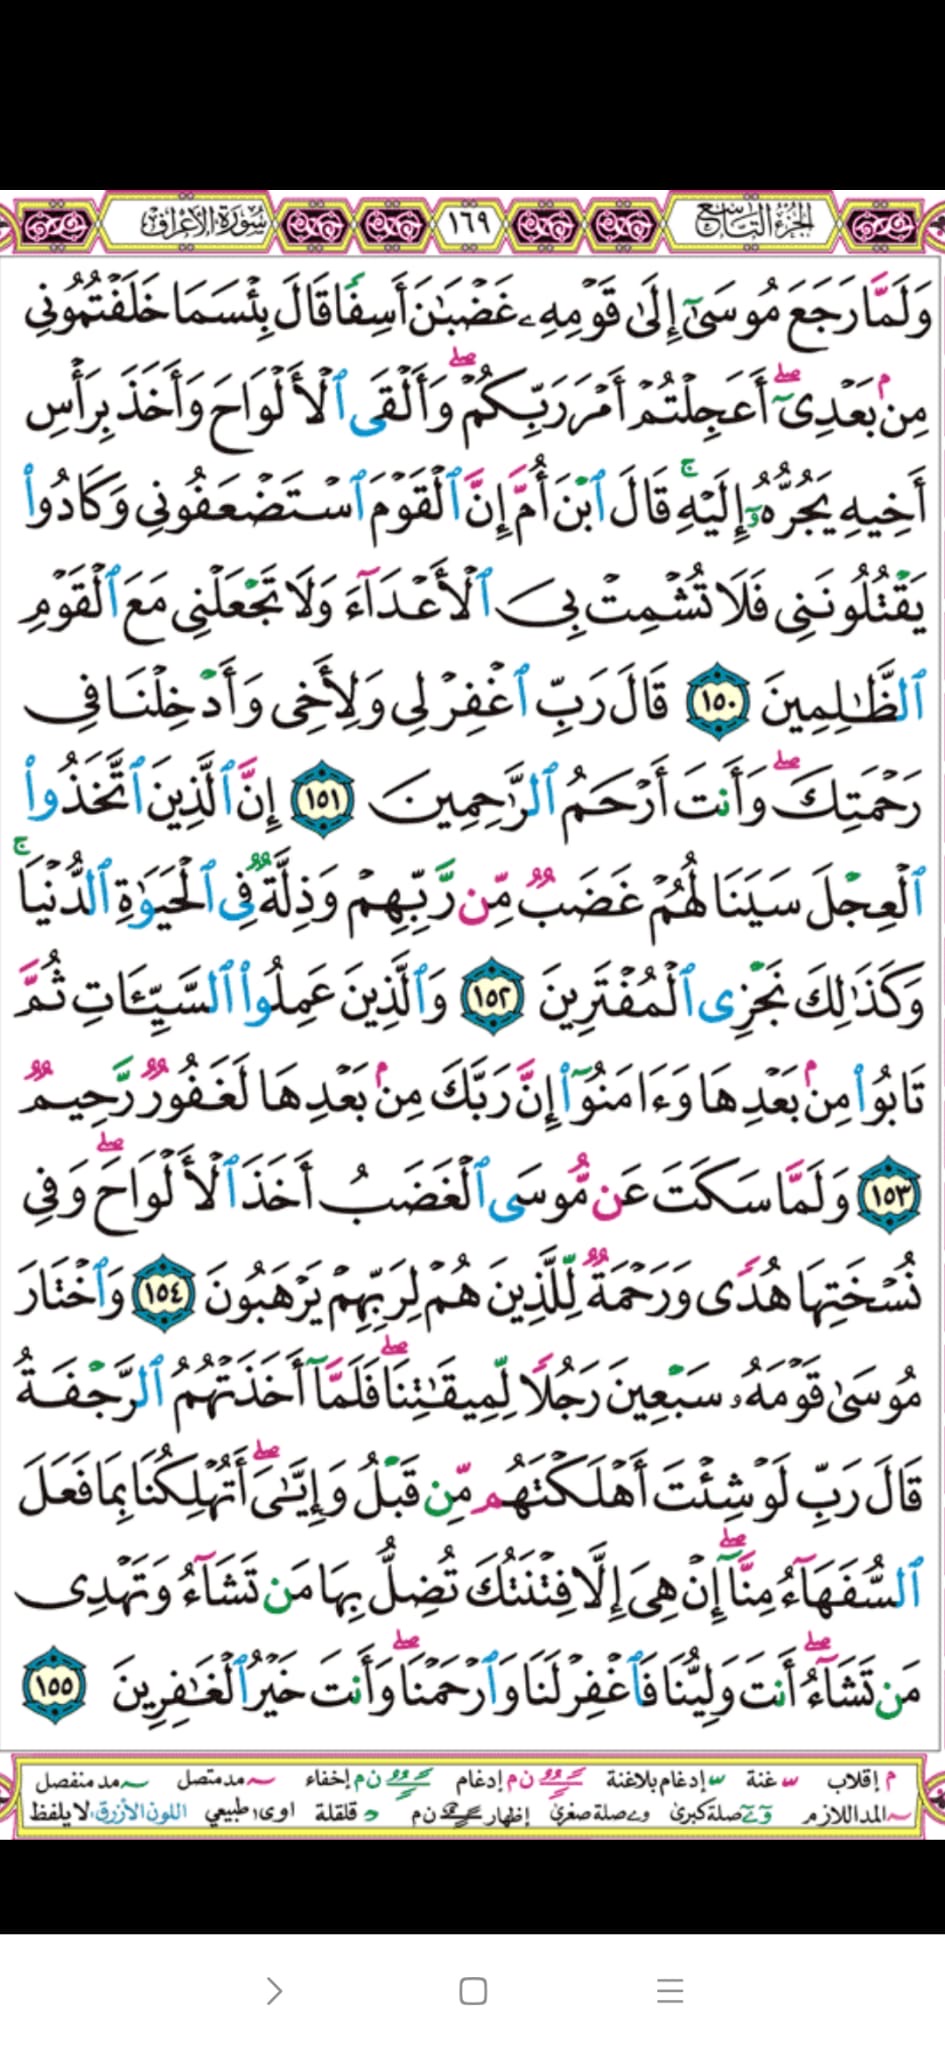 الجزء التاسع
١٦٩
سورة الأعراف
وَلَمَّا رَجَعَ مُوسَىٰٓ إِلَىٰ قَوْمِهِۦ غَضْبَٰنَ أَسِفًا قَالَ بِئْسَمَا خَلَفْتُمُونِى
مِنۢ بَعْدِىٓ ۖ أَعَجِلْتُمْ أَمْرَ رَبِّكُمْ ۖ وَأَلْقَى ٱلْأَلْوَاحَ وَأَخَذَ بِرَأْسِ
أَخِيهِ يَجُرُّهُۥٓ إِلَيْهِ ۚ قَالَ ٱبْنَ أُمَّ إِنَّ ٱلْقَوْمَ ٱسْتَضْعَفُونِى وَكَادُوا۟
يَقْتُلُونَنِى فَلَا تُشْمِتْ بِىَ ٱلْأَعْدَآءَ وَلَا تَجْعَلْنِى مَعَ ٱلْقَوْمِ
ٱلظَّٰلِمِينَ ١٥٠ قَالَ رَبِّ ٱغْفِرْ لِى وَلِأَخِى وَأَدْخِلْنَا فِى
رَحْمَتِكَ ۖ وَأَنتَ أَرْحَمُ ٱلرَّٰحِمِينَ ١٥١ إِنَّ ٱلَّذِينَ ٱتَّخَذُوا۟
ٱلْعِجْلَ سَيَنَالُهُمْ غَضَبٌ مِّن رَّبِّهِمْ وَذِلَّةٌ فِى ٱلْحَيَوٰةِ ٱلدُّنْيَا ۚ
وَكَذَٰلِكَ نَجْزِى ٱلْمُفْتَرِينَ ١٥٢ وَٱلَّذِينَ عَمِلُوا۟ ٱلسَّيِّـَٔاتِ ثُمَّ
تَابُوا۟ مِنۢ بَعْدِهَا وَءَامَنُوٓا۟ إِنَّ رَبَّكَ مِنۢ بَعْدِهَا لَغَفُورٌ رَّحِيمٌ
١٥٣ وَلَمَّا سَكَتَ عَن مُّوسَى ٱلْغَضَبُ أَخَذَ ٱلْأَلْوَاحَ ۖ وَفِى
نُسْخَتِهَا هُدًى وَرَحْمَةٌ لِّلَّذِينَ هُمْ لِرَبِّهِمْ يَرْهَبُونَ ١٥٤ وَٱخْتَارَ
مُوسَىٰ قَوْمَهُۥ سَبْعِينَ رَجُلًا لِّمِيقَٰتِنَا ۖ فَلَمَّآ أَخَذَتْهُمُ ٱلرَّجْفَةُ
قَالَ رَبِّ لَوْ شِئْتَ أَهْلَكْتَهُم مِّن قَبْلُ وَإِيَّٰىَ ۖ أَتُهْلِكُنَا بِمَا فَعَلَ
ٱلسُّفَهَآءُ مِنَّآ ۖ إِنْ هِىَ إِلَّا فِتْنَتُكَ تُضِلُّ بِهَا مَن تَشَآءُ وَتَهْدِى
مَن تَشَآءُ ۖ أَنتَ وَلِيُّنَا فَٱغْفِرْ لَنَا وَٱرْحَمْنَا ۖ وَأَنتَ خَيْرُ ٱلْغَٰفِرِينَ ١٥٥
م إقلاب غنة إدغام بلاغنة ن م إدغام ن م إخفاء مد متصل مد منفصل
المد اللازم صلة كبرى صلة صغرى إظهار ن م قلقلة اوى طبيعي اللون الأزرق: لا يلفظ